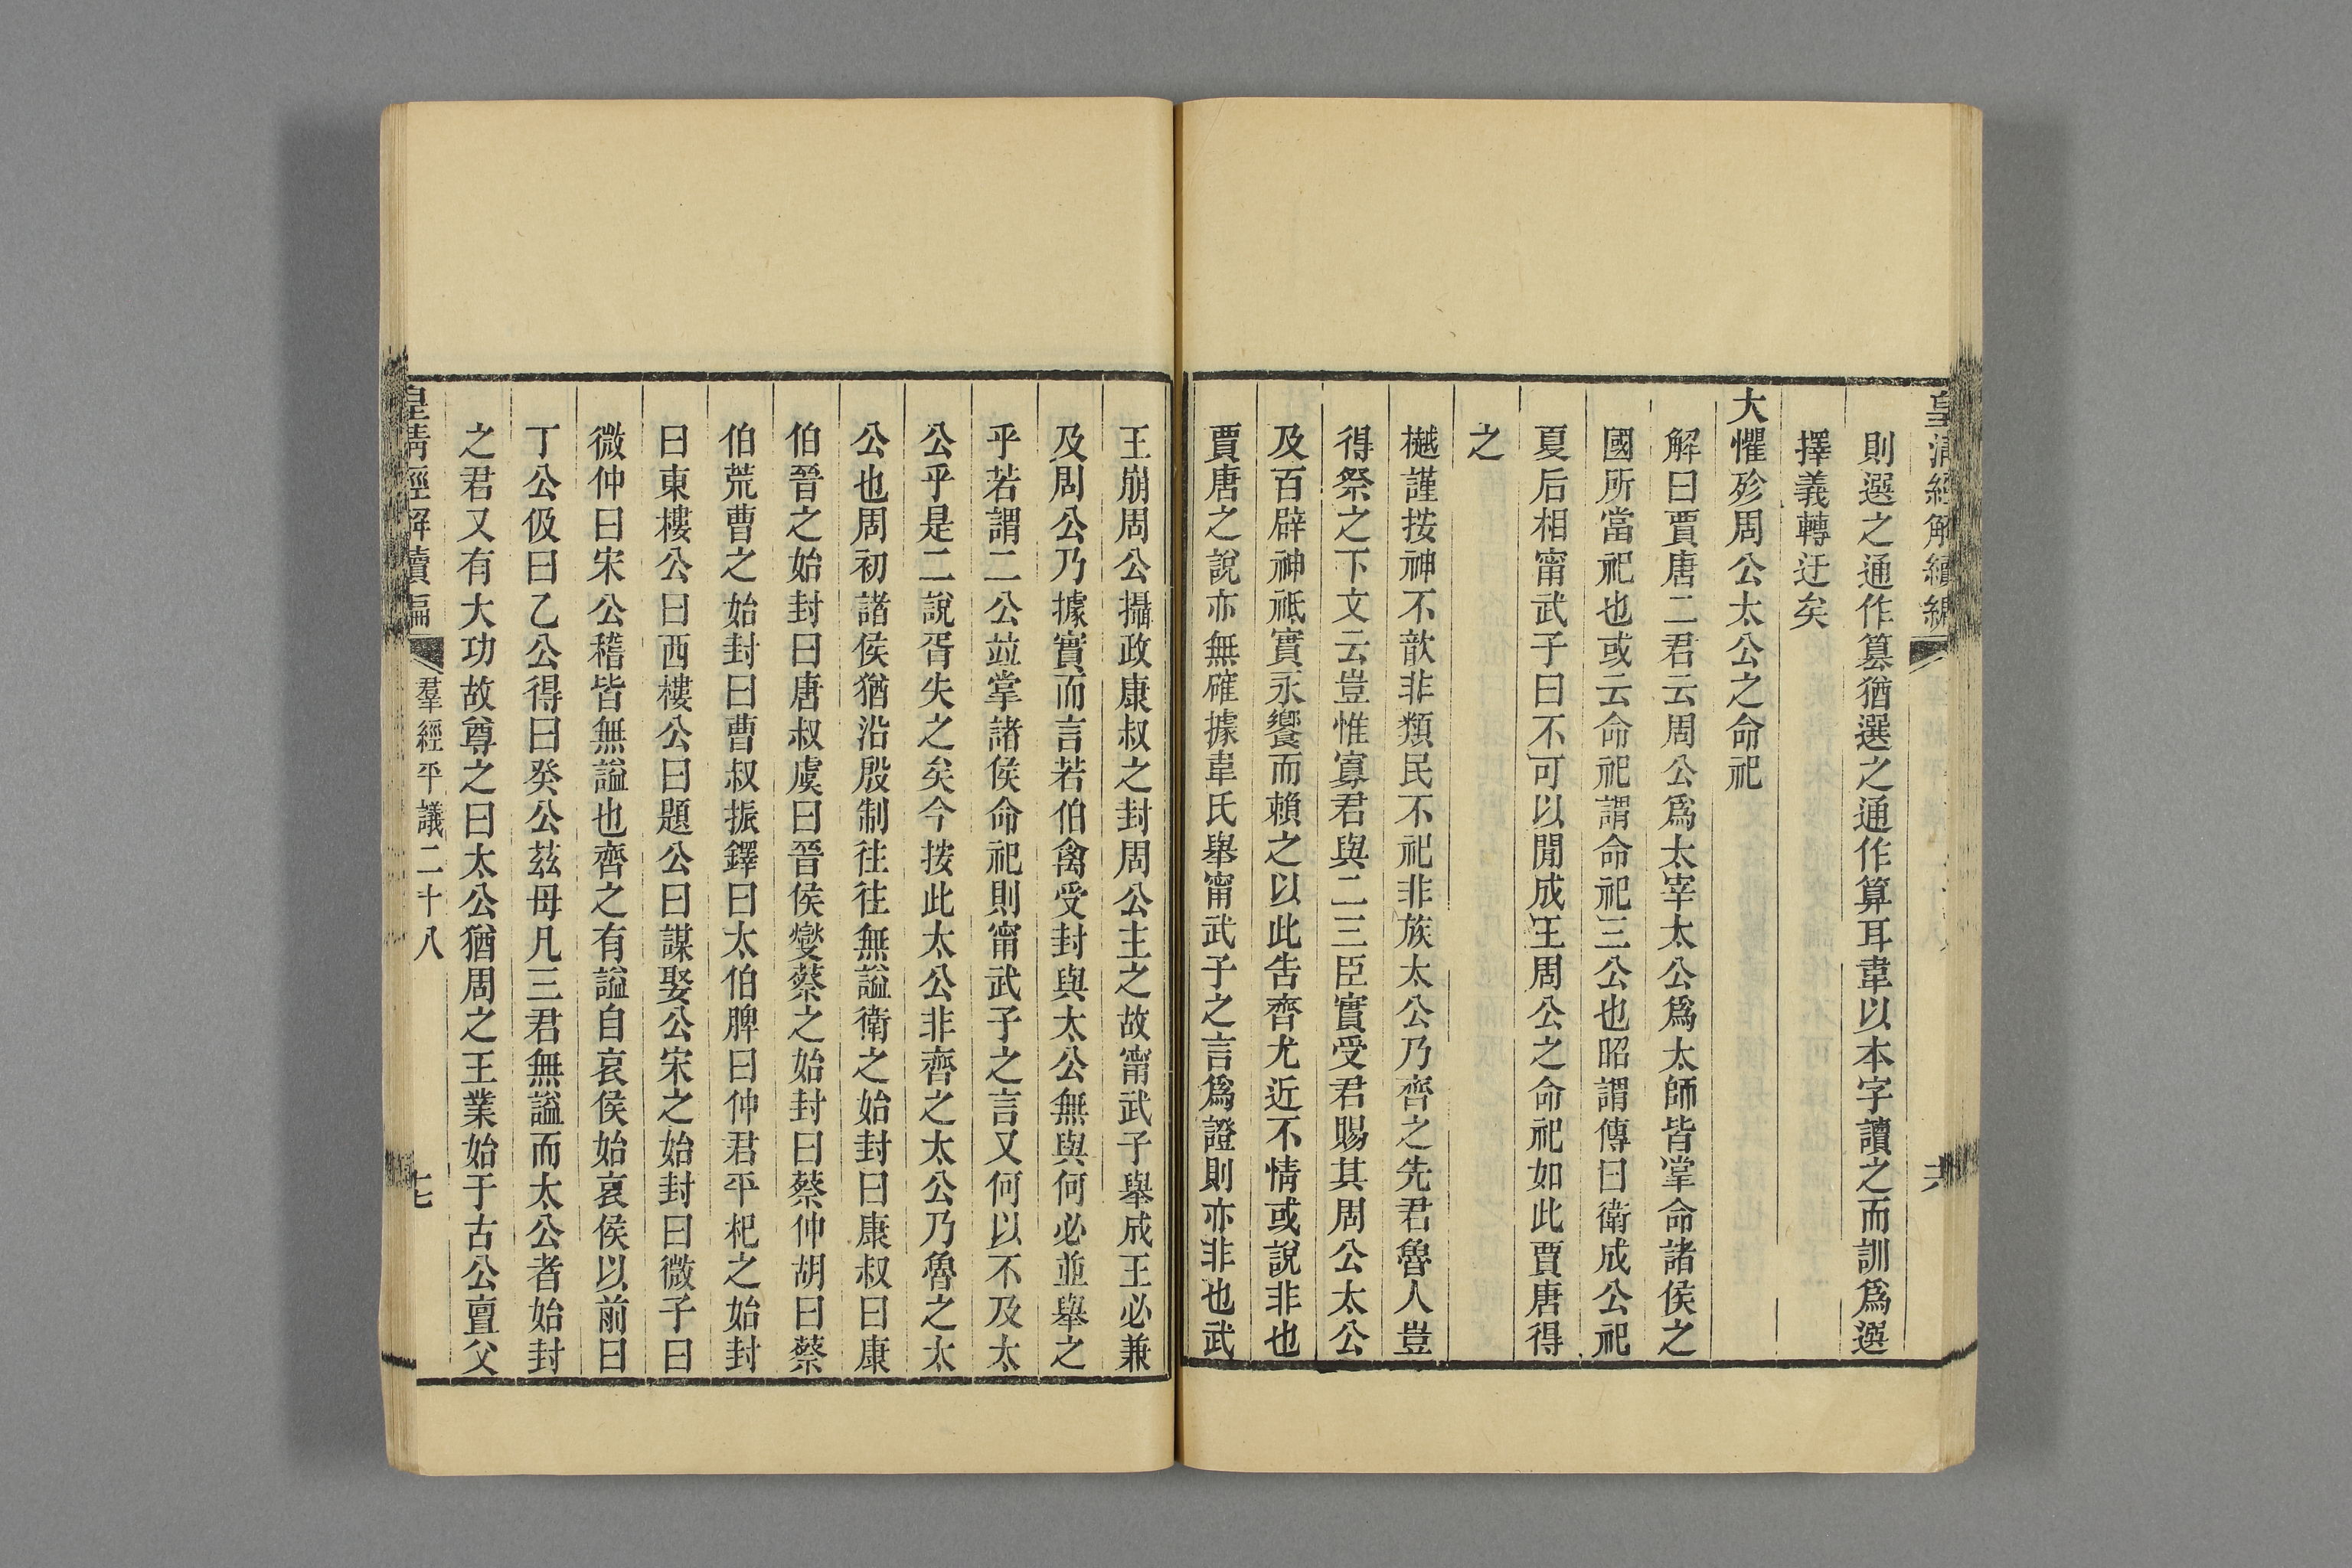 皇清經解續編
則選之通作篹猶選之通作算耳韋以本字讀之而訓爲選
擇義轉迂矣
大懼殄周公太公之命祀
解曰賈唐二君云周公爲太宰太公爲太師皆掌命諸侯之
國所當祀也或云命祀謂命祀三公也昭謂傳曰衛成公祀
夏后相甯武子曰不可以閒成王周公之命祀如此賈唐得
之
樾謹按神不歆非類民不祀非族太公乃齊之先君魯人豈
得祭之下文云豈惟寡君與二三臣實受君賜其周公太公
及百辟神祗實永饗而賴之以此告齊尤近不情或說非也
賈唐之說亦無確據韋氏舉甯武子之言爲證則亦非也武
王崩周公攝政康叔之封周公主之故甯武子舉成王必兼
及周公乃據實而言若伯禽受封與太公無與何必並舉之
乎若謂二公竝掌諸侯命祀則甯武子之言又何以不及太
公乎是二說胥失之矣今按此太公非齊之太公乃魯之太
公也周初諸侯猶沿殷制往往無謚衛之始封曰康叔曰康
伯晉之始封曰唐叔虞曰晉侯燮蔡之始封曰蔡仲胡曰蔡
伯荒曹之始封曰曹叔振鐸曰太伯脾曰仲君平杞之始封
曰東樓公曰西樓公曰題公曰謀娶公宋之始封曰微子曰
微仲曰宋公稽皆無謚也齊之有謚自哀侯始哀侯以前曰
丁公伋曰乙公得曰癸公茲母凡三君無謚而太公者始封
之君又有大功故尊之曰太公猶周之王業始于古公亶父
皇清經解續編
羣經平議二十八
七